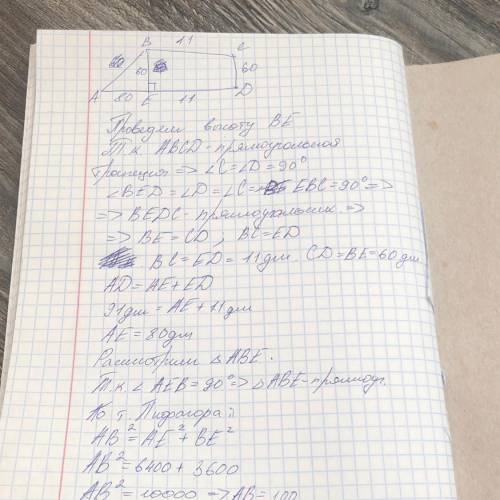 B 11 C
60 60
A 80 E 11 D
Проведём высоту BE
Т.к ABCD - прямоугольная
трапеция => ∠C = ∠D = 90°
∠BED = ∠D = ∠C = EBC = 90° =>
=> BEDC - прямоугольник =>
=> BE = CD, BC = ED
BC = ED = 11дм. CD = BE = 60 дм
AD = AE + ED
91дм = AE + 11 дм
AE = 80дм
Расмотрим △ABE.
Т.к ∠AEB = 90° => △ABE - прямоуг.
По т. Пифагора:
AB² = AE² + BE²
AB² = 6400 + 3600
AB² = 10000 => AB = 100